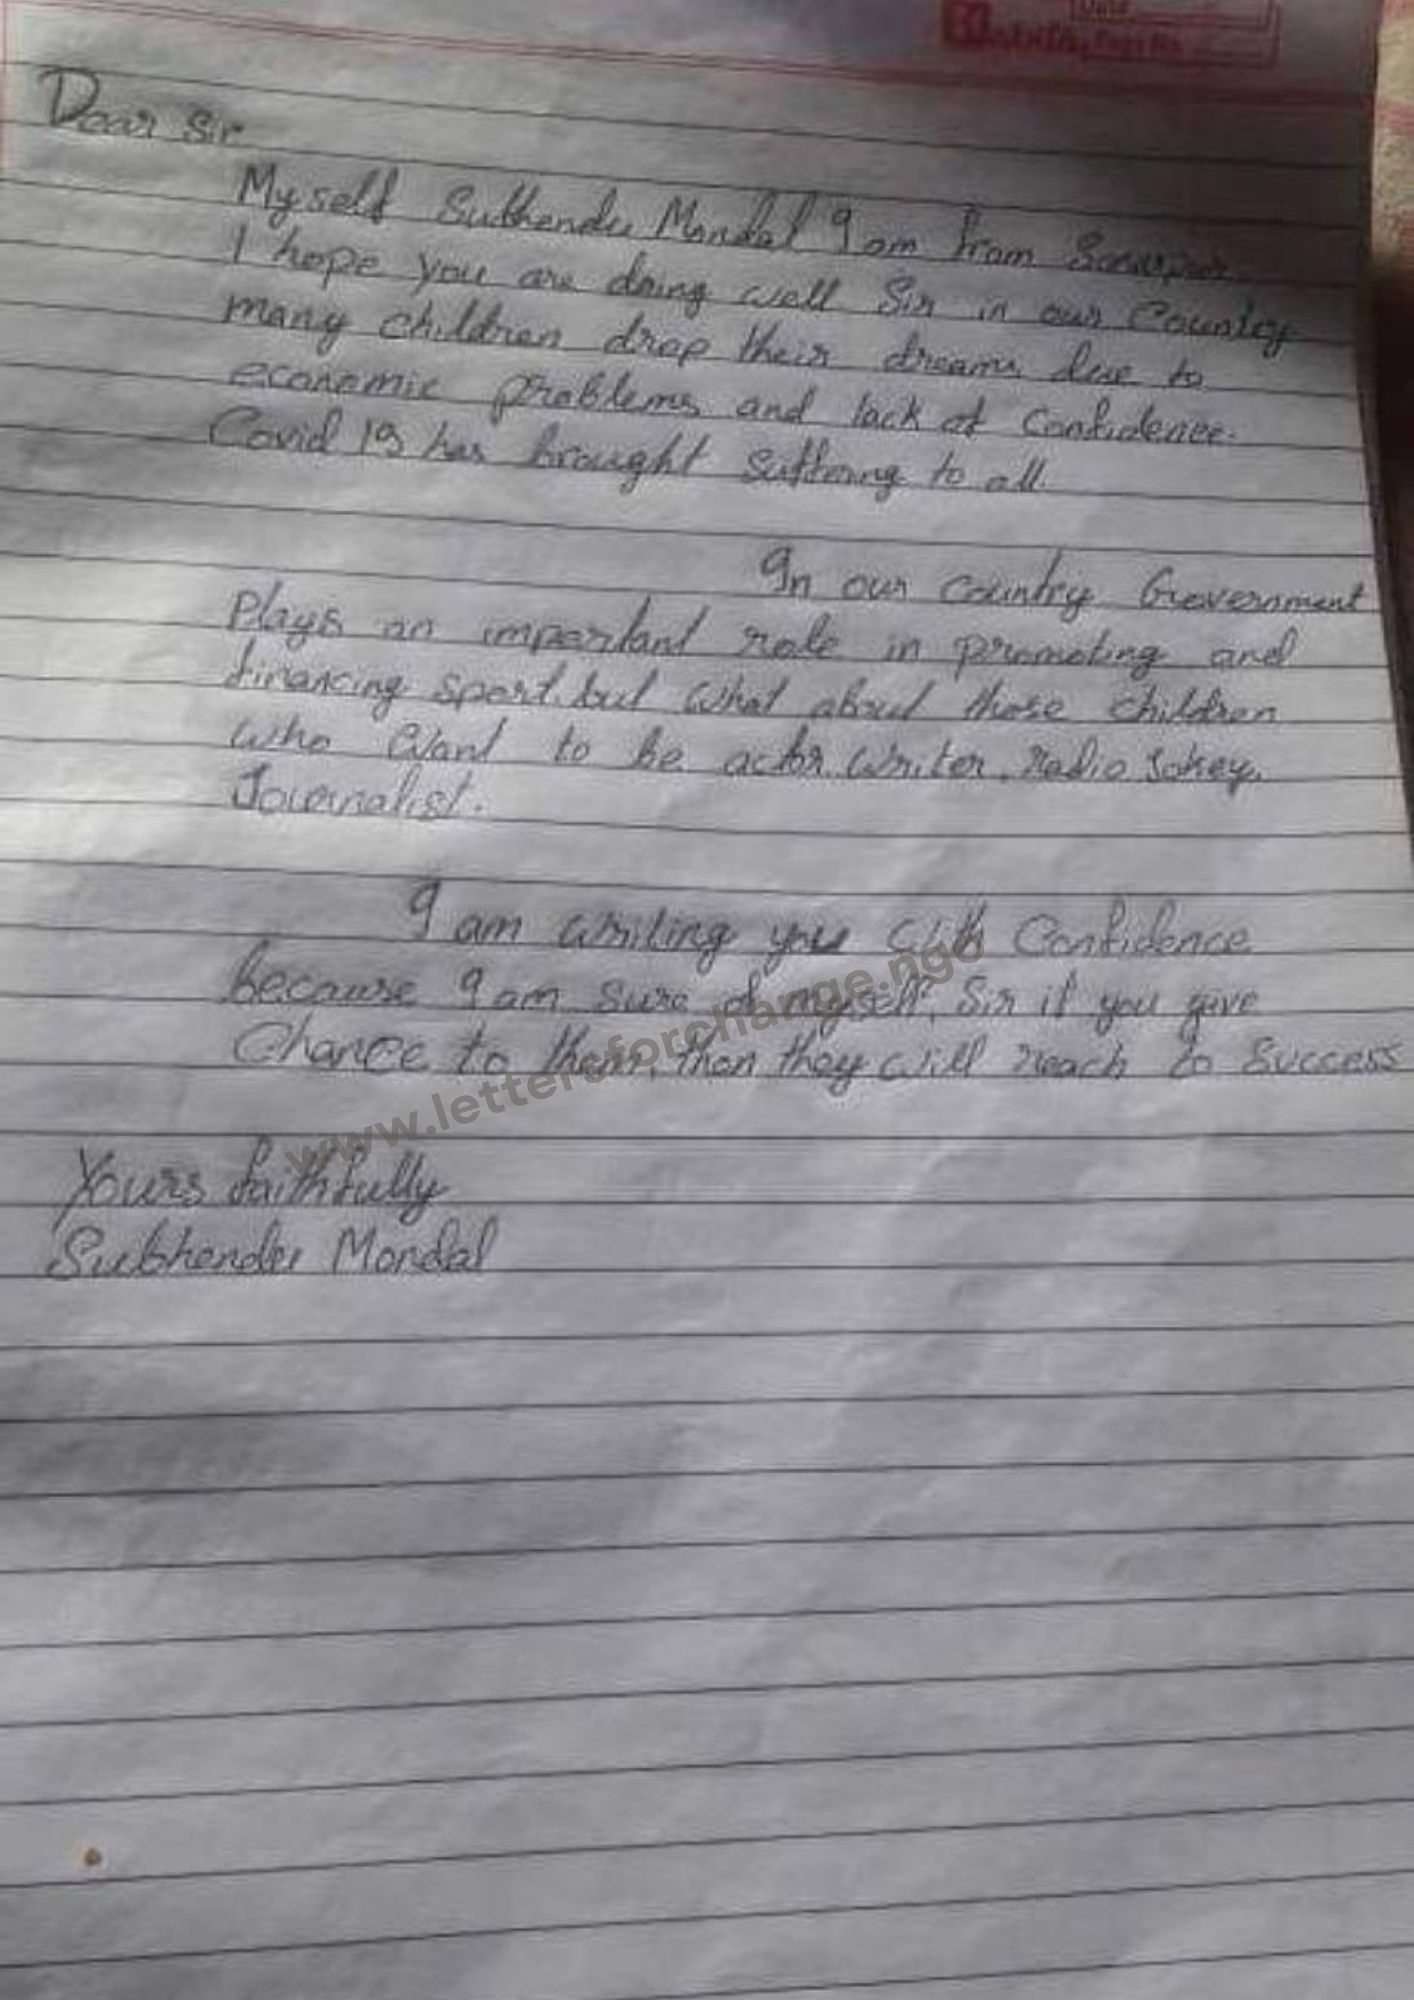 Date
Page No.
Dear Sir
Myself Subhendu Mondal I am from
I hope you are doing well Sir in our Country
many children drop their dreams due to
economic problems and lack of Confidence.
Covid 19 has brought suffering to all.
In our country Government
Plays an important role in promoting and
financing sport. but what about those children
who want to be actor, writer, radio Jokey,
Journalist.
I am writing you with Confidence
because I am sure of myself. Sir if you give
Chance to them, then they will reach to Success
www.lettersforchange.ngo
Yours faithfully
Subhendu Mondal